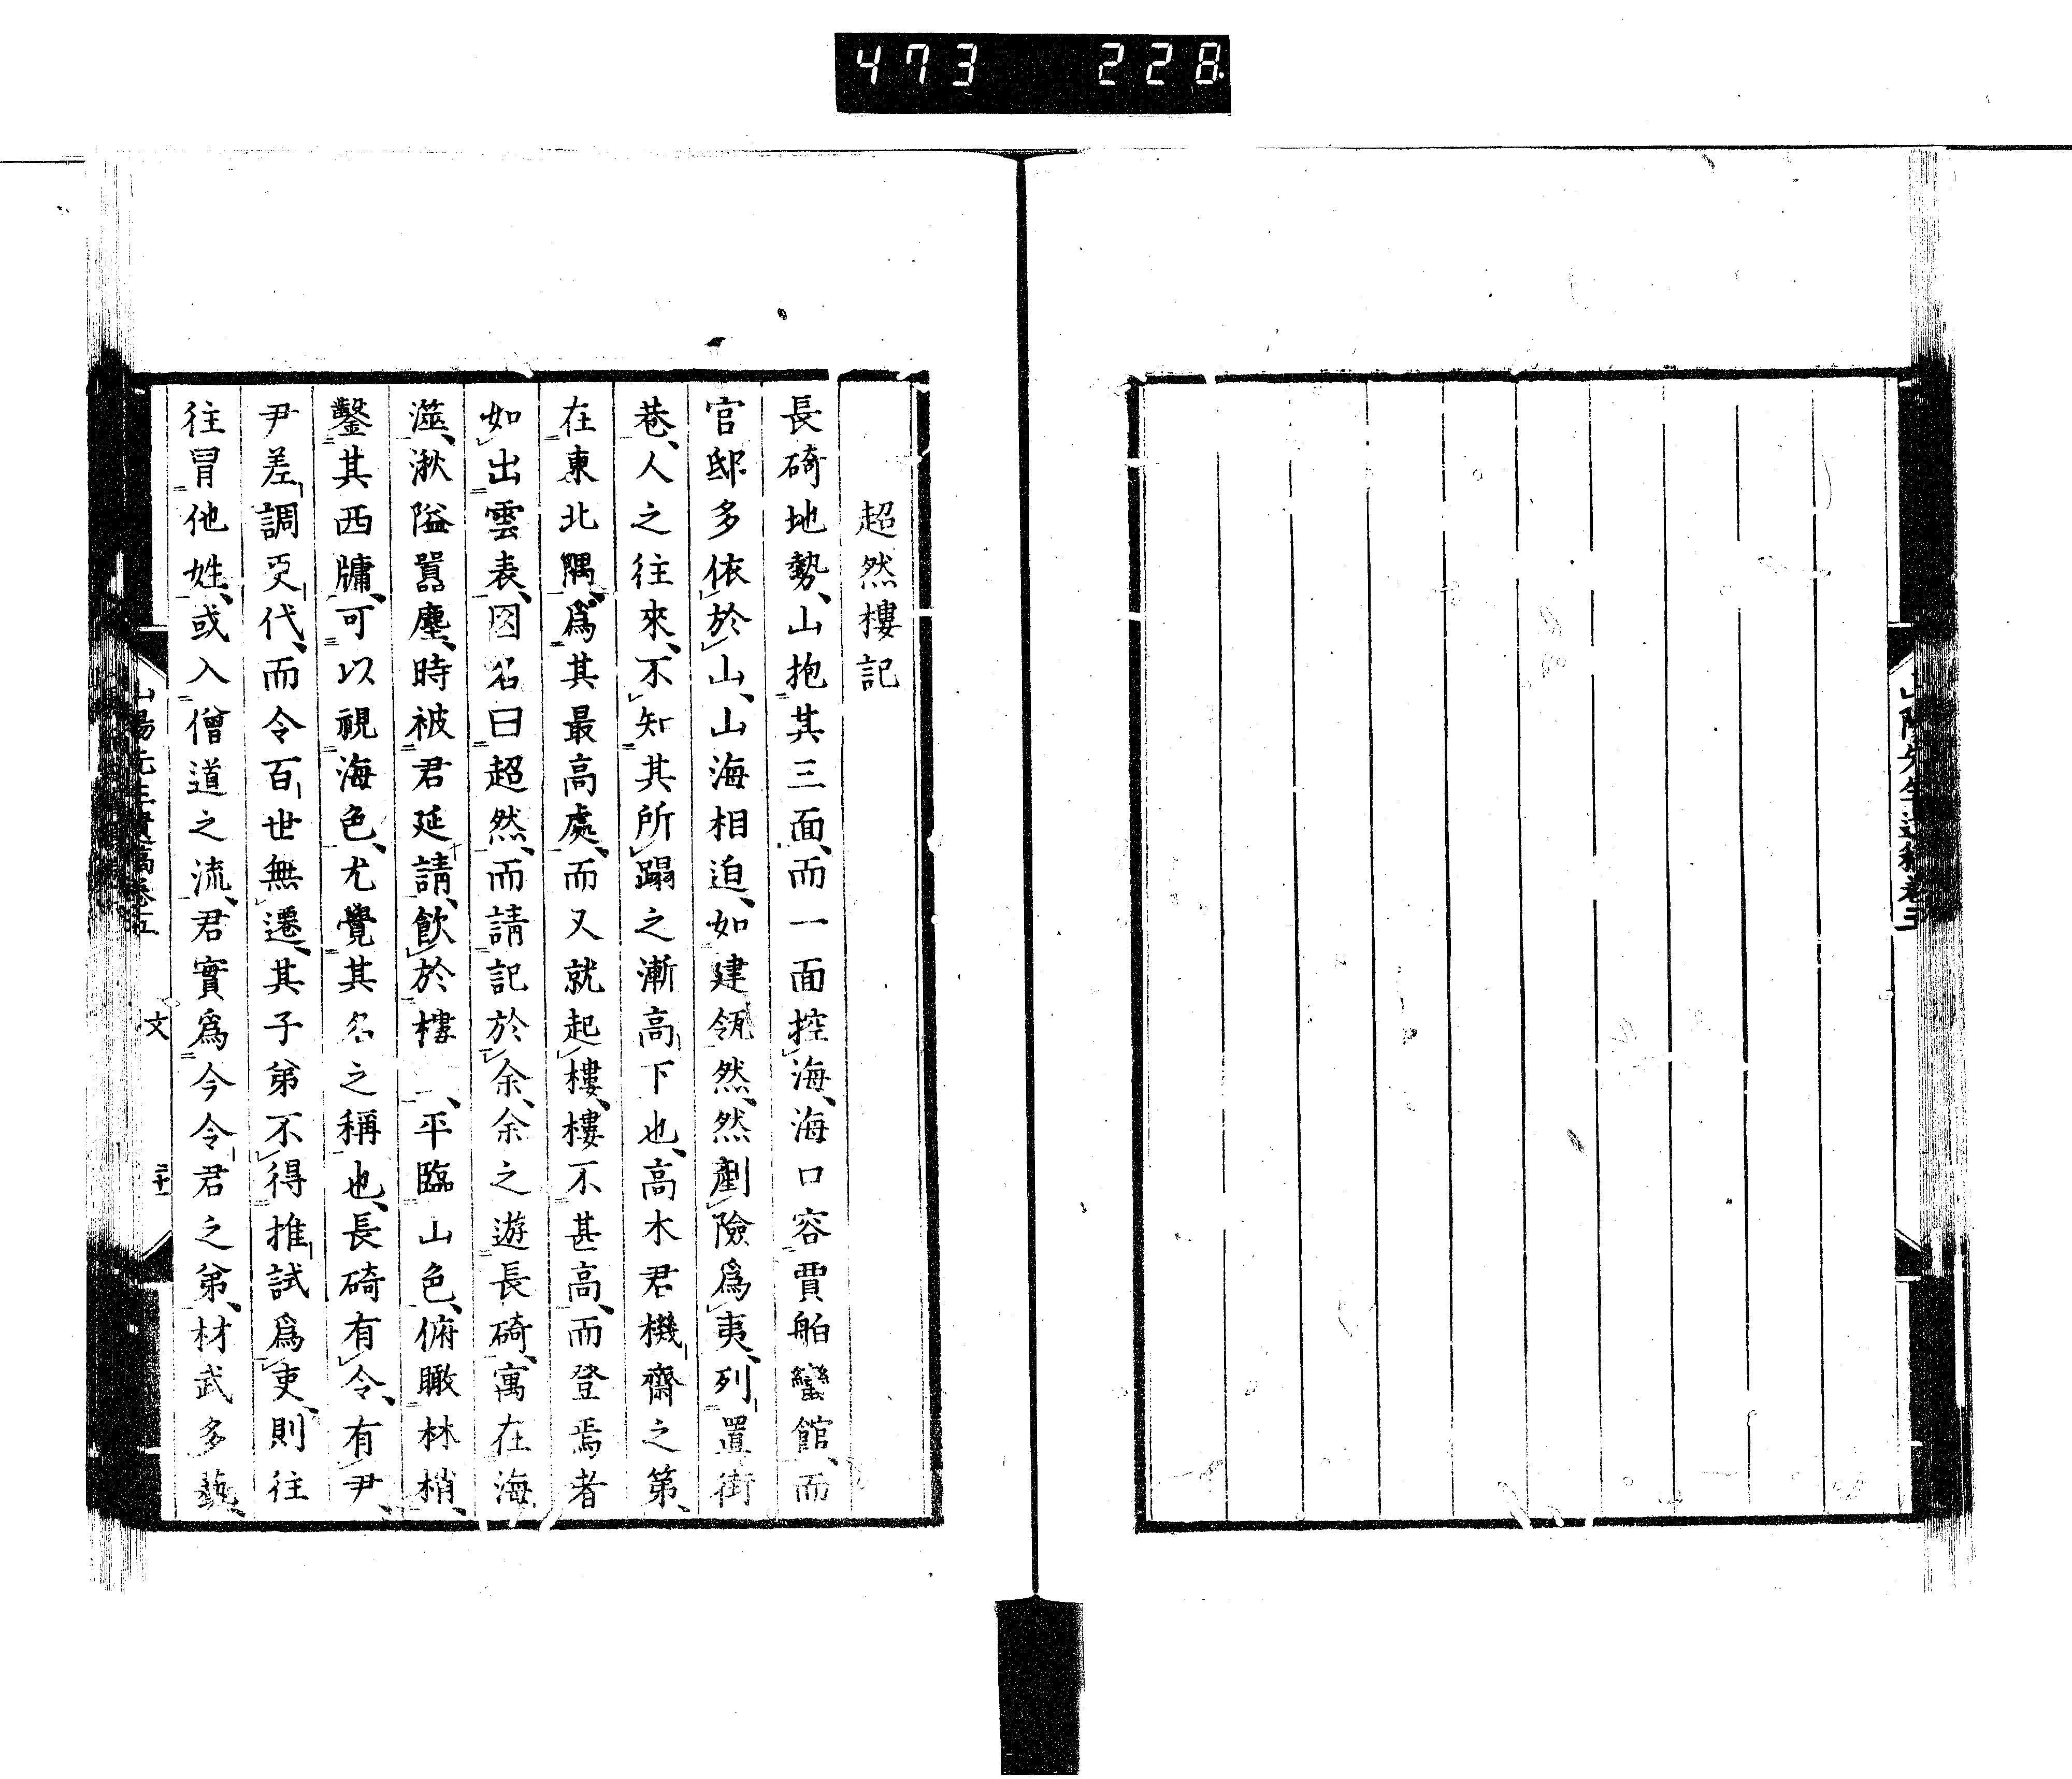 473 228
超然樓記
長碕地勢、山抱其三面、而一面控海、海口容賈舶蠻館、而
官邸多依於山、山海相迫、如建瓴然、然剷險爲夷、列置街
巷、人之往來、不知其所躋之漸高下也、高木君機齋之第、
在東北隅、爲其最高處、而又就起樓、樓不甚高、而登焉者
如出雲表、因名曰超然、而請記於余、余之遊長碕、寓在海
澨、湫隘囂塵、時被君延請、飲於樓一、平臨山色、俯瞰林梢、
鑿其西牖、可以視海色、尤覺其名之稱也、長碕有令、有尹、
尹差調更代、而令百世無遷、其子弟不得推試爲吏、則往
往冒他姓、或入僧道之流、君實爲今令君之弟、材武多藝、
山陽先生遺稿卷五
文
二十一